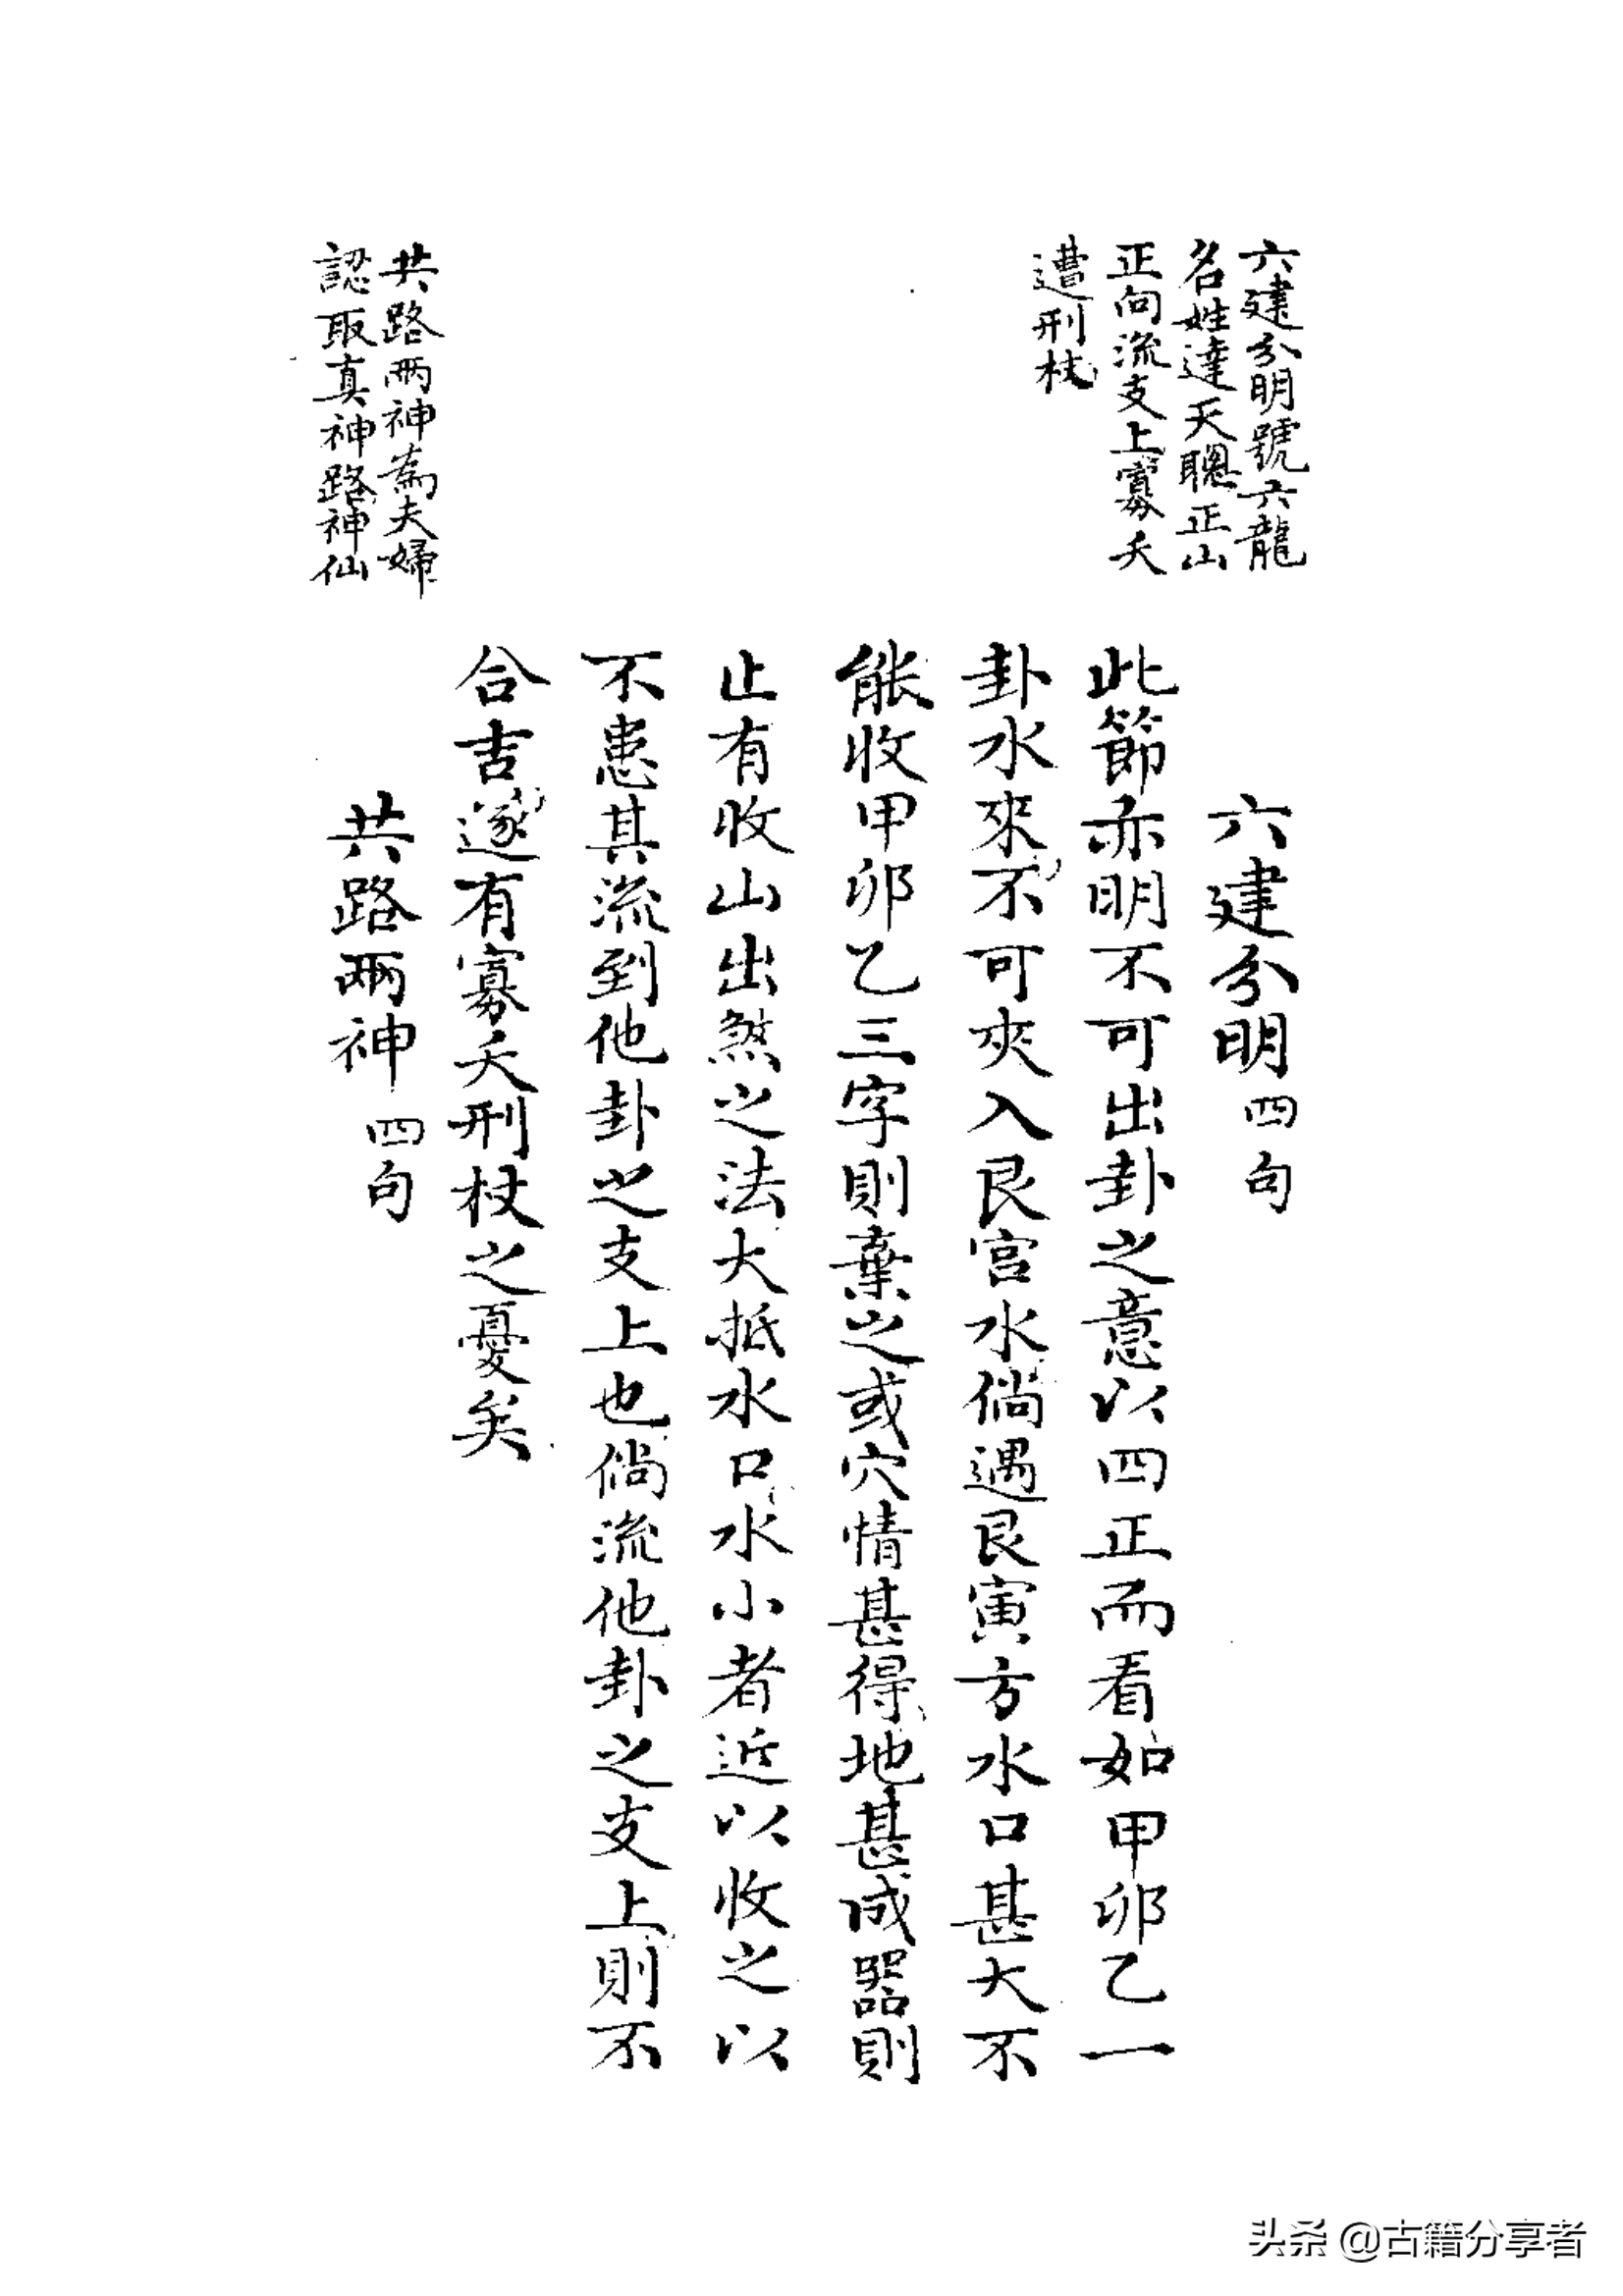 六建分明號六龍
名姓達天聰正山
正向流支上寡夭
遭刑杖
六建分明四句
此節亦明不可出卦之意以四正而看如甲卯乙一
卦水來不可夾入艮宮水倘遇艮寅方水口甚大不
能收甲卯乙三字則棄之或穴情甚得地甚成器則
止有收山出煞之法大抵水口水小者近以收之以
不患其流到他卦之支上也倘流他卦之支上則不
合吉遂有寡夭刑杖之憂矣
共路兩神為夫婦
認取真神路神仙
共路兩神四句
头条 @古籍分享者